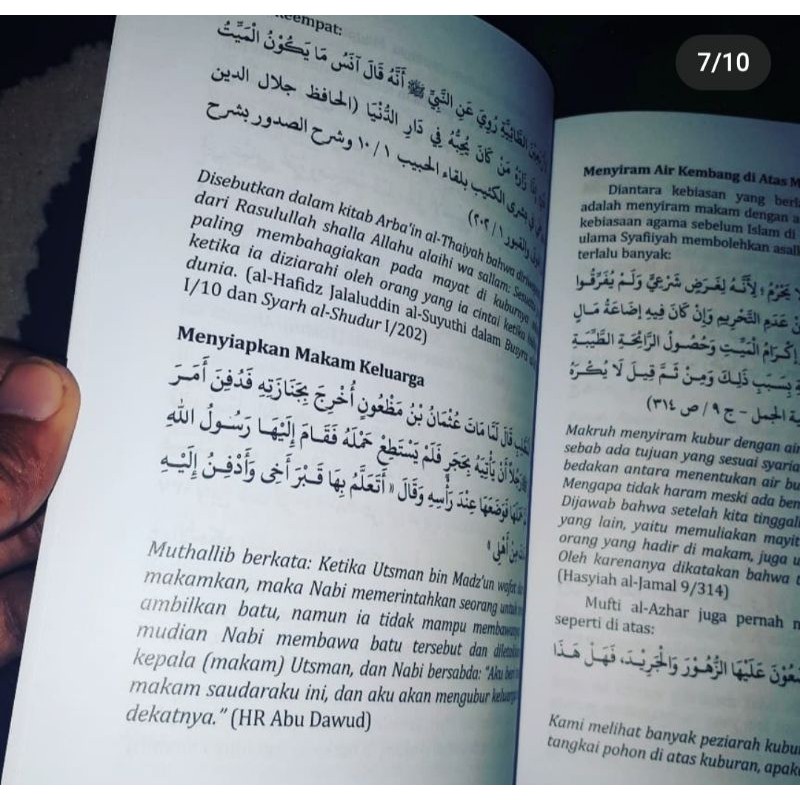 7/10
keempat:
الطَّائِيَّةِ رُوِيَ عَنِ النَّبِيِّ ﷺ أَنَّهُ قَالَ آنَسُ مَا يَكُوْنُ الْمَيِّتُ
مَنْ كَانَ يُحِبُّهُ فِي دَارِ الدُّنْيَا (الحافظ جلال الدين
بشرى الكئيب بلقاء الحبيب ١ / ١٠ وشرح الصدور بشرح
والقبور ١ / ٢٠٢)
Disebutkan dalam kitab Arba'in al-Thaiyah bahwa
dari Rasulullah shalla Allahu alaihi wa sallam:
paling membahagiakan pada mayat di kuburnya
ketika ia diziarahi oleh orang yang ia cintai ketika
dunia. (al-Hafidz Jalaluddin al-Suyuthi dalam Busyra
I/10 dan Syarh al-Shudur I/202)
Menyiapkan Makam Keluarga
قَالَ لَمَّا مَاتَ عُثْمَانُ بْنُ مَظْعُونٍ أُخْرِجَ بِجَنَازَتِهِ فَدُفِنَ أَمَرَ
رَجُلاً أَنْ يَأْتِيَهُ بِحَجَرٍ فَلَمْ يَسْتَطِعْ حَمْلَهُ فَقَامَ إِلَيْهَا رَسُولُ اللهِ
فَوَضَعَهَا عِنْدَ رَأْسِهِ وَقَالَ « أَتَعَلَّمُ بِهَا قَبْرَ أَخِى وَأَدْفِنُ إِلَيْهِ
مِنْ أَهْلِى »
Muthallib berkata: Ketika Utsman bin Madz'un wafat
makamkan, maka Nabi memerintahkan seorang untuk
ambilkan batu, namun ia tidak mampu membawanya
mudian Nabi membawa batu tersebut dan
kepala (makam) Utsman, dan Nabi bersabda: "Aku
makam saudaraku ini, dan aku akan mengubur
dekatnya." (HR Abu Dawud)
Menyiram Air Kembang di Atas
Diantara kebiasan yang
adalah menyiram makam dengan
kebiasaan agama sebelum Islam di
ulama Syafiiyah membolehkan
terlalu banyak:
يَحْرُمْ؛ لِأَنَّهُ لِغَرَضٍ شَرْعِيٍّ وَلَمْ يُفَرِّقُوا
عَدَمِ التَّحْرِيمِ وَإِنْ كَانَ فِيهِ إِضَاعَةُ مَالٍ
إِكْرَامُ الْمَيِّتِ وَحُصُولُ الرَّائِحَةِ الطَّيِّبَةِ
بِسَبَبِ ذَلِكَ وَمِنْ ثَمَّ قِيلَ لَا يُكْرَهُ
الجمل – ج ٩ / ص ٣١٤)
Makruh menyiram kubur dengan air
sebab ada tujuan yang sesuai
bedakan antara menentukan air
Mengapa tidak haram meski ada
Dijawab bahwa setelah kita
yang lain, yaitu memuliakan
orang yang hadir di makam, juga
Oleh karenanya dikatakan bahwa
(Hasyiah al-Jamal 9/314)
Mufti al-Azhar juga pernah
seperti di atas:
عَلَيْهَا الزُّهُوْرَ وَالْجَرِيْدَ، فَهَلْ هَذَا
Kami melihat banyak peziarah
tangkai pohon di atas kuburan,